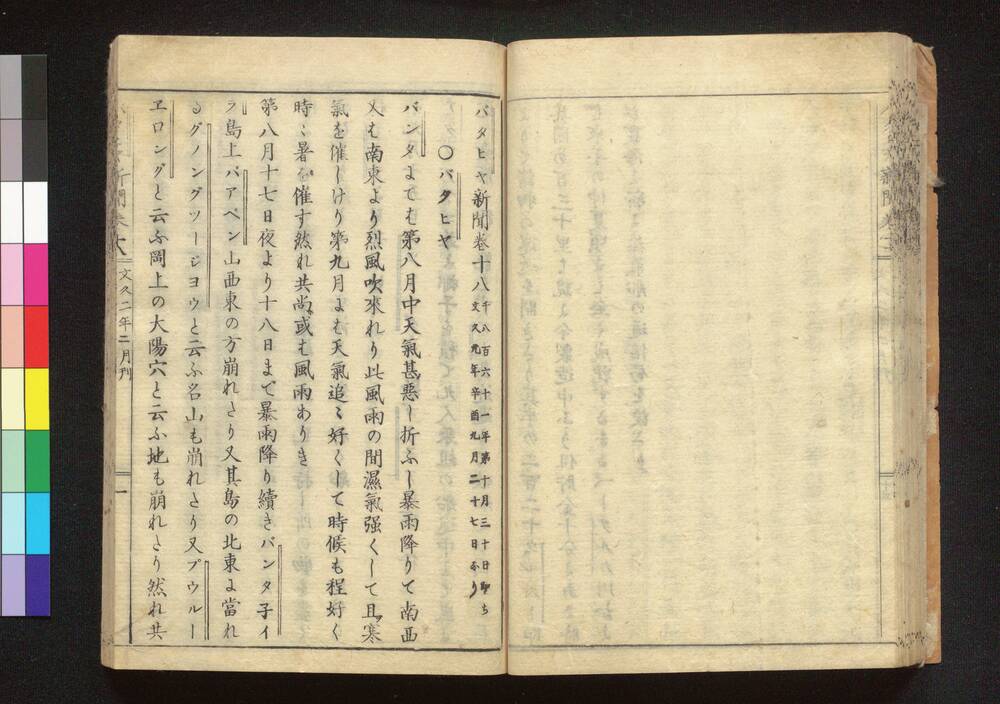 バタヒヤ新聞巻十八 千八百六十一年第十月三十日即ち
文久元年辛酉九月二十七日なり
〇バタヒヤ
バンタまでも第八月中天氣甚悪し折ふし暴雨降りて南西
又も南東より烈風吹來れり此風雨の間濕氣强くして且寒
氣を催しけり第九月よも天氣追々好くして時候も程好く
時々暑を催す然れ共尚或も風雨ありき
第八月十七日夜より十八日まで暴雨降り續きバンタ子イ
ラ島上パアペン山西東の方崩れたり又其島の北東よ當れ
るグノングツージヨウと云ふ名山も崩れたり又プウルー
ヱロングと云ふ岡上の大陽穴と云ふ地も崩れたり然れ共
新聞巻六
文久二年二月刊
一
新聞巻